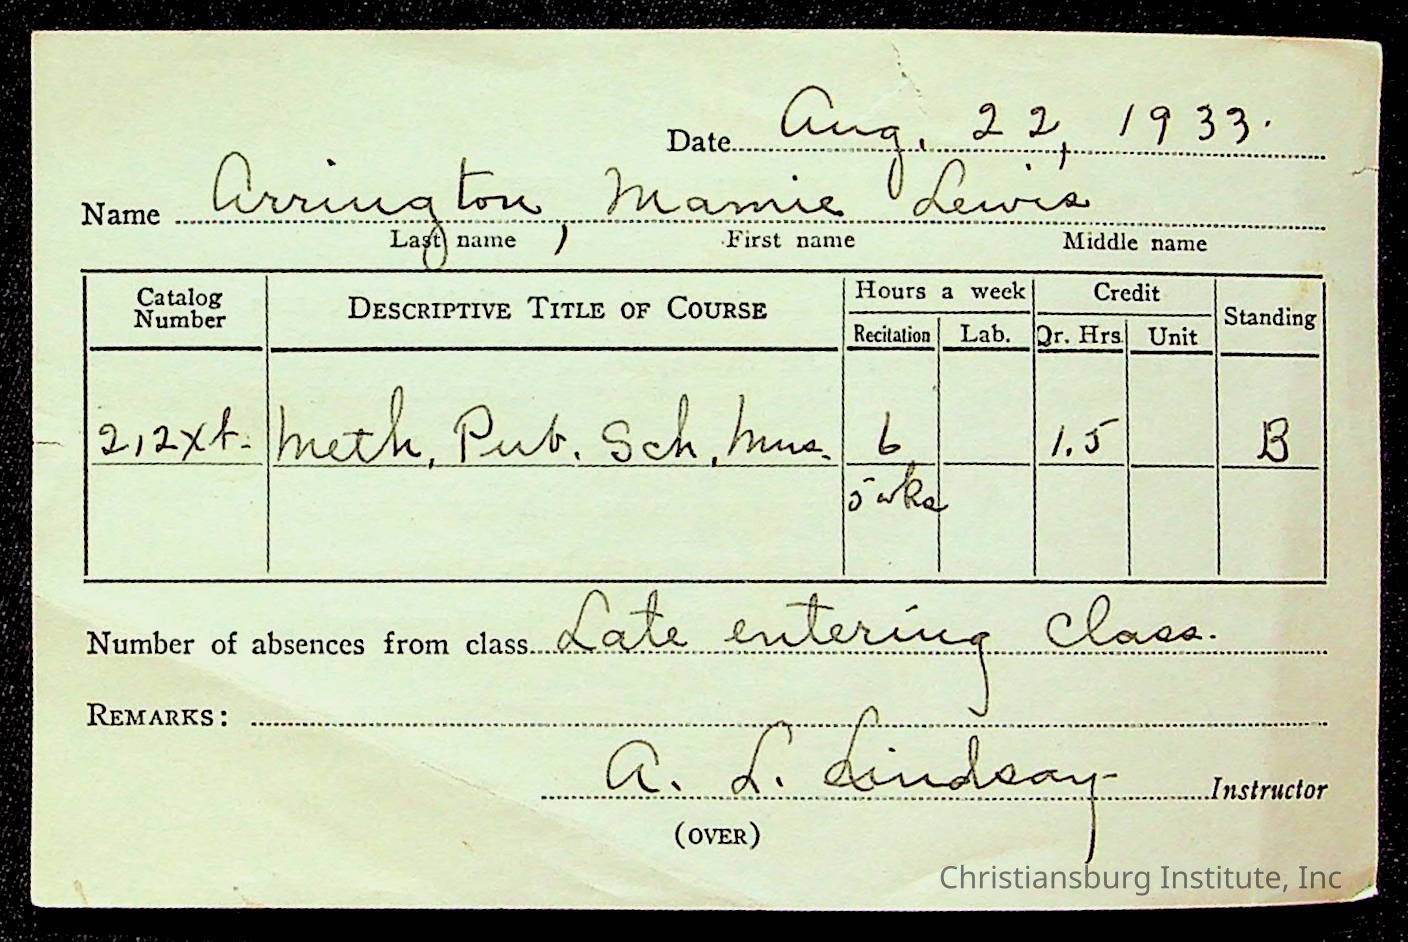 Date Aug. 22, 1933.
Name Arrington, Mamie Lewis
Last name First name Middle name
Catalog Number DESCRIPTIVE TITLE OF COURSE Hours a week Credit Standing
Recitation Lab. Qr. Hrs. Unit
212Xt. Meth. Pub. Sch. Mus. 6 1.5 B
5 wks
Number of absences from class Late entering class.
REMARKS:
A. L. Lindsay Instructor
(OVER)
Christiansburg Institute, Inc